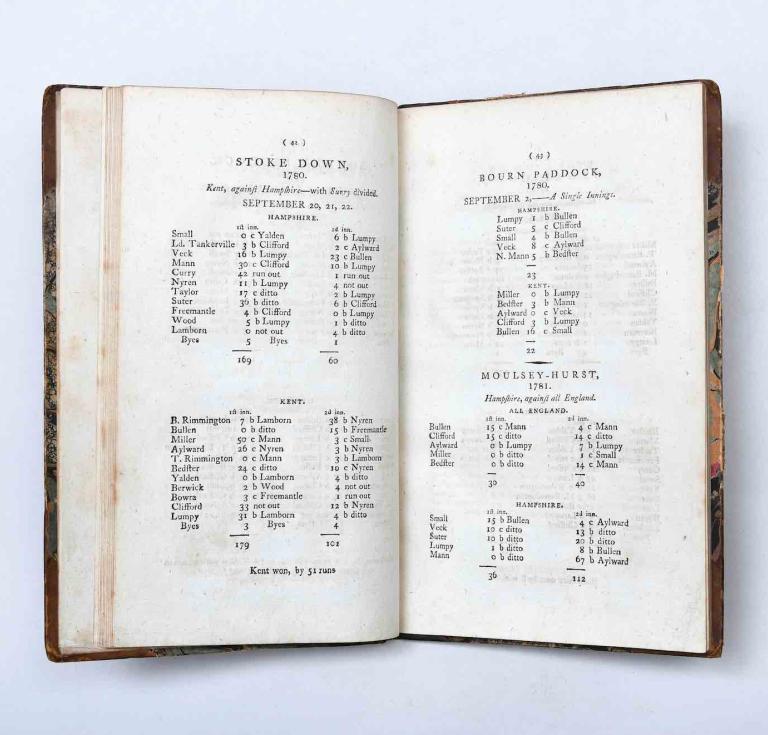 ( 42 )
STOKE DOWN,
1780.
Kent, againſt Hampſhire—with Surry divided.
SEPTEMBER 20, 21, 22.
HAMPSHIRE.
1ſt inn. 2d inn.
Small 0 c Yalden 6 b Lumpy
Ld. Tankerville 3 b Clifford 2 c Aylward
Veck 16 b Lumpy 23 c Bullen
Mann 30 c Clifford 10 b Lumpy
Curry 42 run out 1 run out
Nyren 11 b Lumpy 4 not out
Taylor 17 c ditto 2 b Lumpy
Suter 36 b ditto 6 b Clifford
Freemantle 4 b Clifford 0 b Lumpy
Wood 5 b Lumpy 1 b ditto
Lamborn 0 not out 4 b ditto
Byes 5 Byes 1
169 60
KENT.
1ſt inn. 2d inn.
B. Rimmington 7 b Lamborn 38 b Nyren
Bullen 0 b ditto 15 b Freemantle
Miller 50 c Mann 3 c Small
Aylward 26 c Nyren 3 b Nyren
T. Rimmington 0 c Mann 3 b Lamborn
Bedſter 24 c ditto 10 c Nyren
Yalden 0 b Lamborn 4 b ditto
Berwick 2 b Wood 4 not out
Bowra 3 c Freemantle 1 run out
Clifford 33 not out 12 b Nyren
Lumpy 31 b Lamborn 4 b ditto
Byes 3 Byes 4
179 101
Kent won, by 51 runs
( 43 )
BOURN PADDOCK,
1780.
SEPTEMBER 2,——A Single Innings.
HAMPSHIRE.
Lumpy 1 b Bullen
Suter 5 c Clifford
Small 4 b Bullen
Veck 8 c Aylward
N. Mann 5 b Bedſter
23
KENT.
Miller 0 b Lumpy
Bedſter 3 b Mann
Aylward 0 c Veck
Clifford 3 b Lumpy
Bullen 16 c Small
22
MOULSEY-HURST,
1781.
Hampſhire, againſt all England.
ALL ENGLAND.
1ſt inn. 2d inn.
Bullen 15 c Mann 4 c Mann
Clifford 15 c ditto 14 c ditto
Aylward 0 b Lumpy 7 b Lumpy
Miller 0 b ditto 1 c Small
Bedſter 0 b ditto 14 c Mann
30 40
HAMPSHIRE.
1ſt inn. 2d inn.
Small 15 b Bullen 4 c Aylward
Veck 10 c ditto 13 b ditto
Suter 10 b ditto 20 b ditto
Lumpy 1 b ditto 8 b Bullen
Mann 0 b ditto 67 b Aylward
36 112